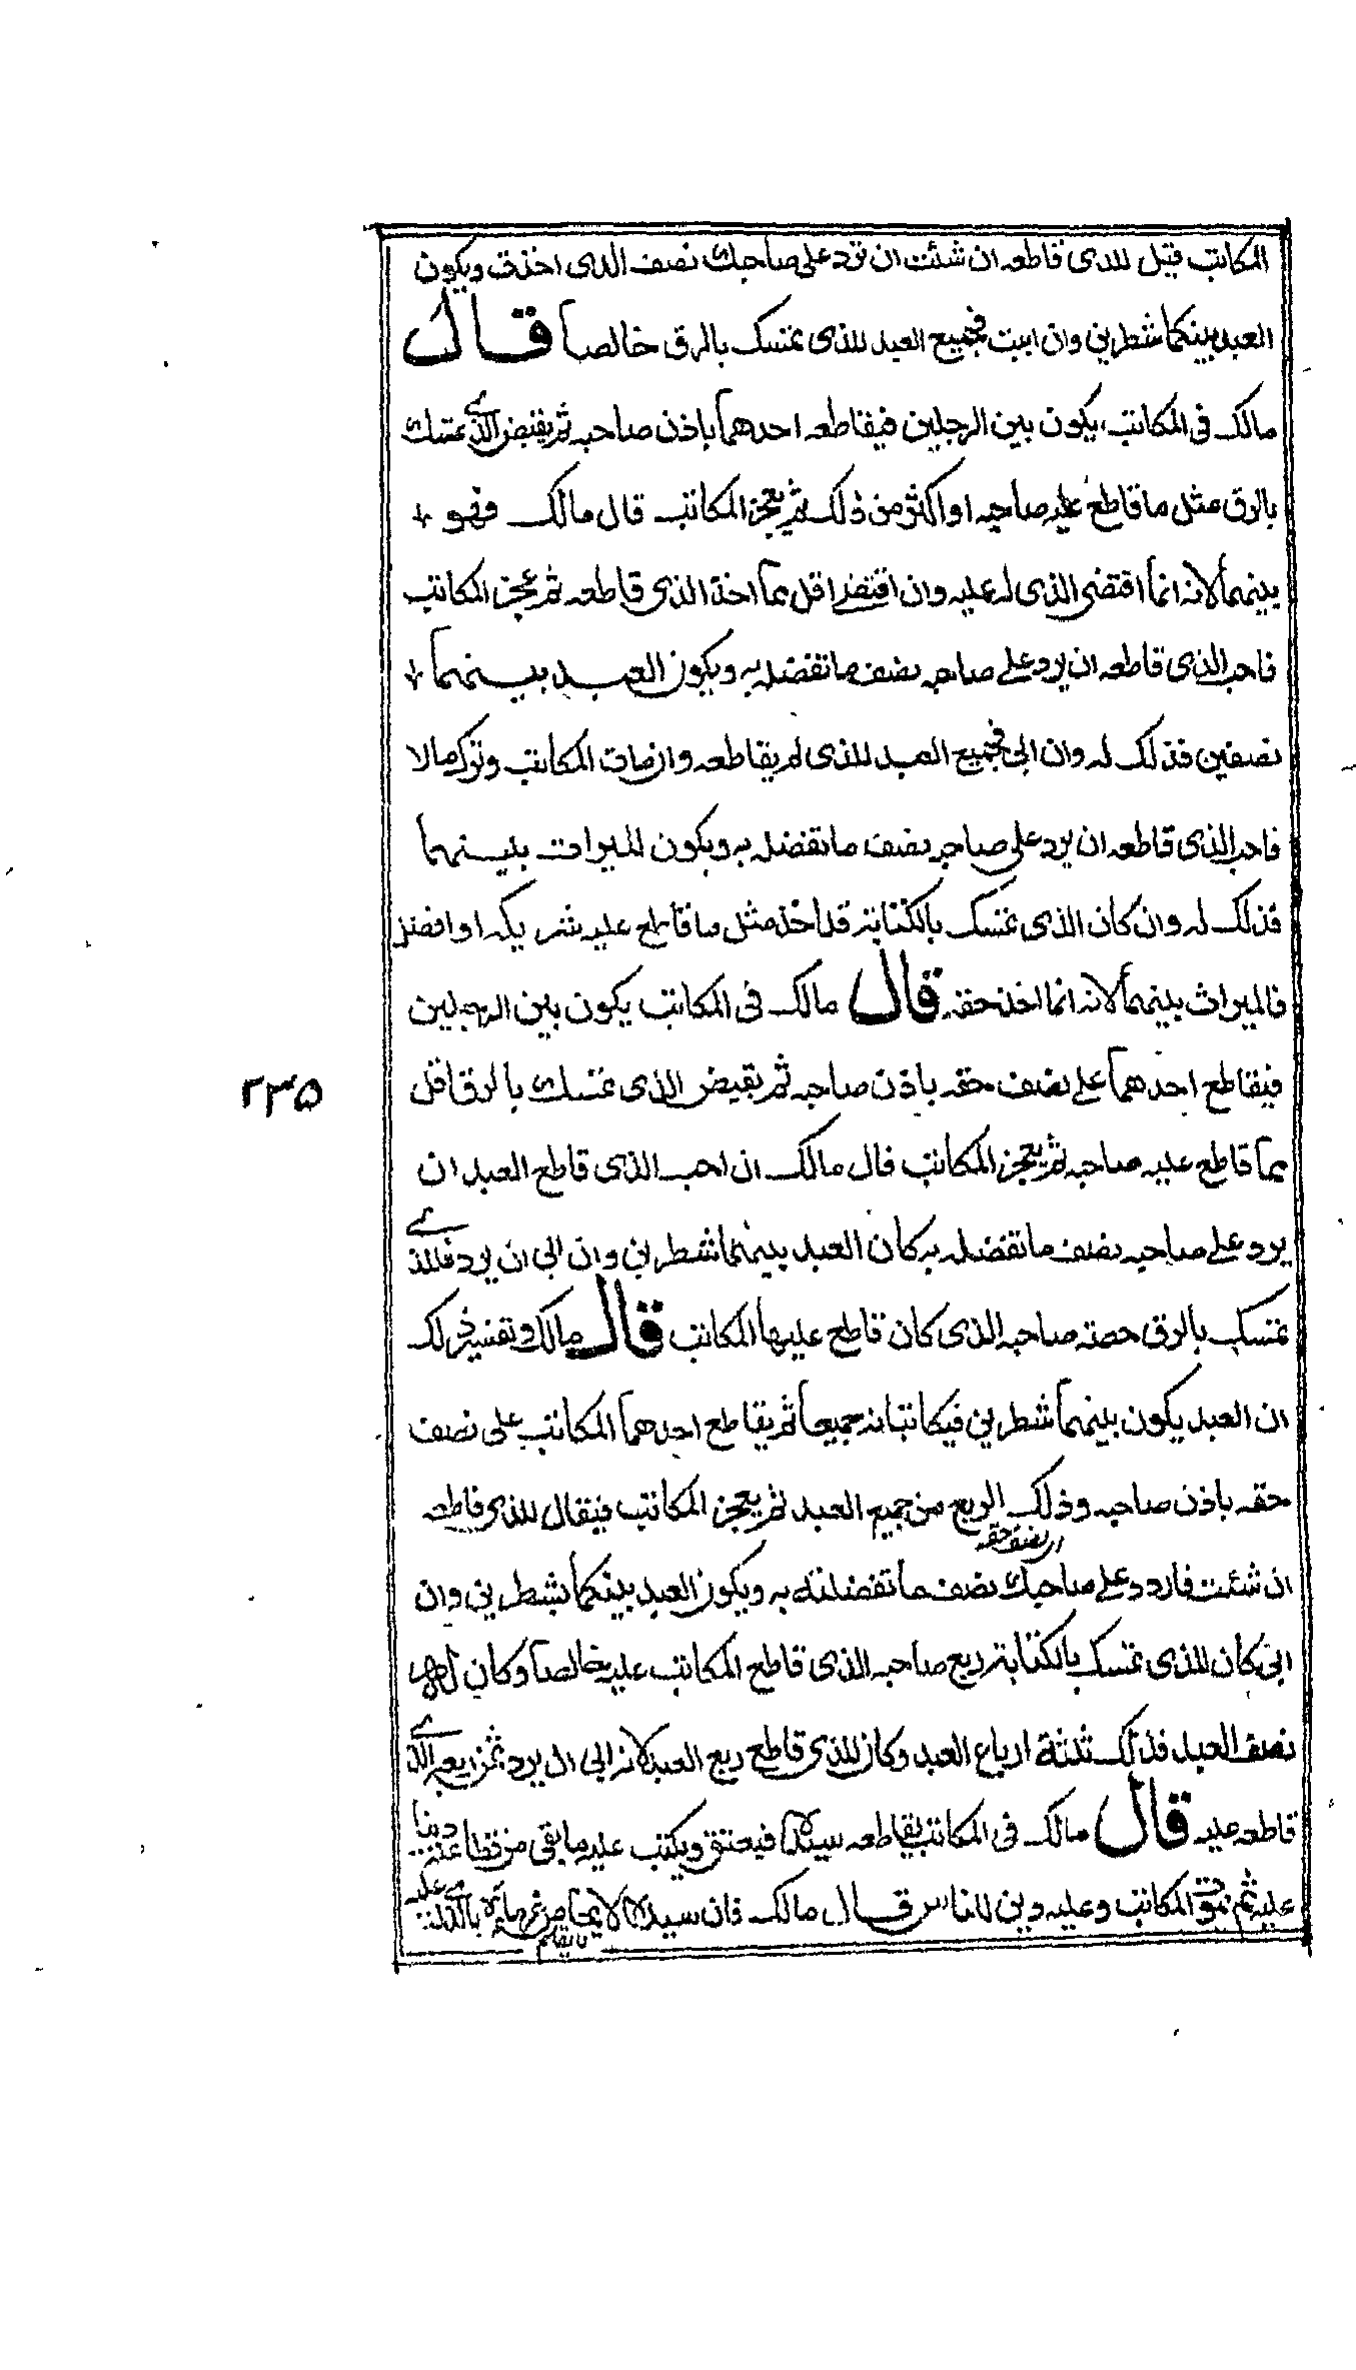 المكاتب قيل للذى قاطعه ان شئت ان ترد على صاحبك نصف الذى اخذت ويكون
العبد بينكما شطرين وان ابيت فجميع العبد للذى تمسك بالرق خالصا قال
مالك فى المكاتب يكون بين الرجلين فيقاطعه احدهما باذن صاحبه ثم يقبض الذى تمسك
بالرق مثل ما قاطع عليه صاحبه او اكثر من ذلك ثم يعجز المكاتب قال مالك فهو
بينهما لانه انما اقتضى الذى له عليه وان اقتضى اقل مما اخذ الذى قاطعه ثم عجز المكاتب
فاحب الذى قاطعه ان يرد على صاحبه نصف ما تفضله به ويكون العبد بينهما
نصفين فذلك له وان ابى فجميع العبد للذى لم يقاطعه وان مات المكاتب وترك مالا
فاحب الذى قاطعه ان يرد على صاحبه نصف ما تفضله به ويكون الميراث بينهما
فذلك له وان كان الذى تمسك بالكتابة قد اخذ مثل ما قاطع عليه شريكه او افضل
فالميراث بينهما لانه انما اخذ حقه قال مالك فى المكاتب يكون بين الرجلين
فيقاطع احدهما على نصف حقه باذن صاحبه ثم يقبض الذى تمسك بالرق اقل
٢٣٥
مما قاطع عليه صاحبه ثم يعجز المكاتب قال مالك ان احب الذى قاطع العبد ان
يرد على صاحبه نصف ما تفضله به كان العبد بينهما شطرين وان ابى ان يرد فللذى
تمسك بالرق حصته صاحبه الذى كان قاطع عليها المكاتب قال مالك وتفسير ذلك
ان العبد يكون بينهما شطرين فيكاتبانه جميعا ثم يقاطع احدهما المكاتب على نصف
حقه باذن صاحبه وذلك الربع من جميع العبد ثم يعجز المكاتب فيقال للذى قاطعه
نصف حقه
ان شئت فاردد على صاحبك نصف ما تفضلته به ويكون العبد بينكما شطرين وان
ابى كان للذى تمسك بالكتابة ربع صاحبه الذى قاطع المكاتب عليه خالصا وكان له
نصف العبد فذلك ثلثة ارباع العبد وكان للذى قاطع ربع العبد لانه ابى ان يرد ثمن ربعه الذى
قاطعه عليه قال مالك فى المكاتب يقاطعه سيده فيعتق ويكتب عليه ما بقى من قطاعته دينا
عليه ثم يموت المكاتب وعليه دين للناس قال مالك فان سيده لا يحاص غرماءه بالذى له عليه